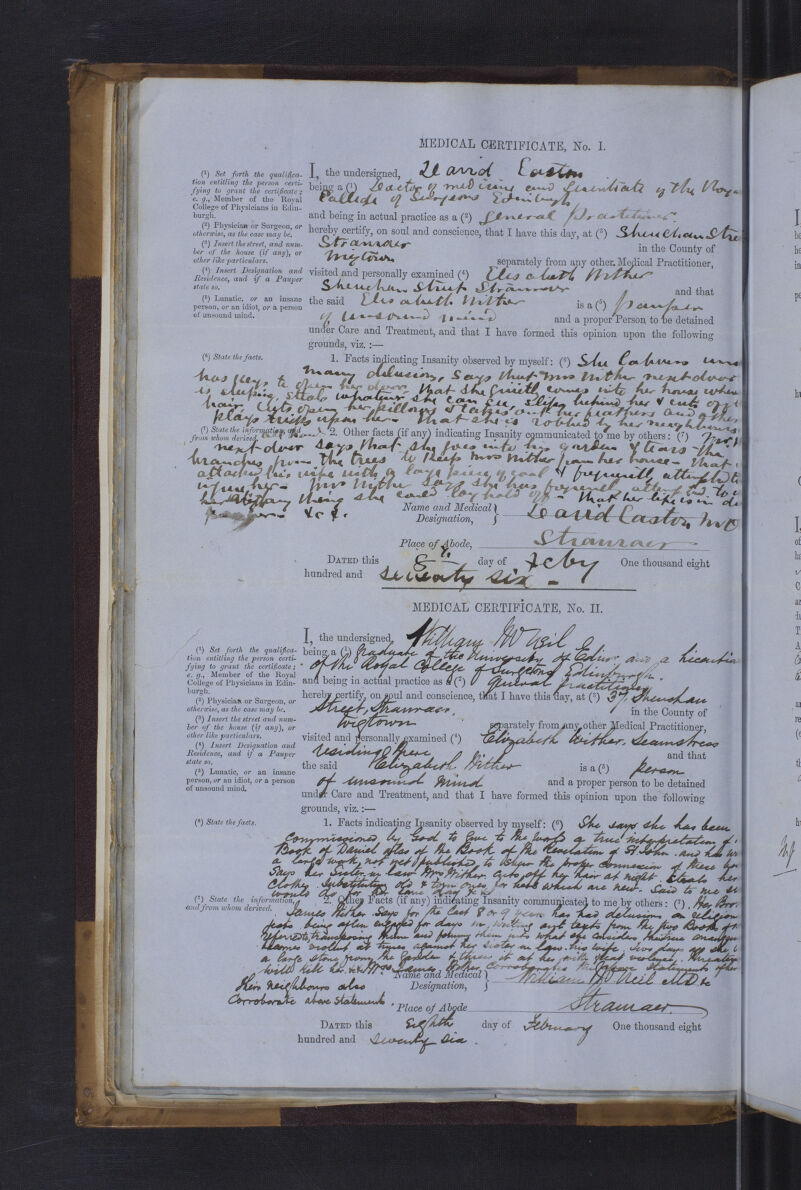 MEDICAL CERTIFICATE, No. I.
(1) Set forth the qualifica-
tion entitling the person certi-
fying to grant the certificate;
e. g., Member of the Royal
College of Physicians in Edin-
burgh.
(2) Physician or Surgeon, or
otherwise, as the case may be.
(3) Insert the street, and num-
ber of the house (if any), or
other like particulars.
(4) Insert Designation and
Residence, and if a Pauper
state so.
(5) Lunatic, or an insane
person, or an idiot, or a person
of unsound mind.
I, the undersigned, David Easton
being a (1) Doctor of medicine and Licentiate of the Roya
College of Surgeons Edinburgh
and being in actual practice as a (2) General Practitioner
hereby certify, on soul and conscience, that I have this day, at (3) Sheuchan Stre
Stranraer in the County of
Wigtown separately from any other Medical Practitioner,
visited and personally examined (4) Elisabeth Wither
Sheuchan Street Stranraer and that
the said Elisabeth Wither is a (5)
of unsound mind and a proper Person to be detained
under Care and Treatment, and that I have formed this opinion upon the following
grounds, viz. :—
(6) State the facts.
1. Facts indicating Insanity observed by myself: (6) She labours un
many delusions, Says that Mrs Wither next door
has keys to open her doors that she comes into her house when
is sleeping, steals whatever she can get, slips behind her & cuts off
hair, cuts open her pillows & takes out her feathers and
Plays tricks upon her — that she is robbed by her neighbours
(7) State the information, and
from whom derived.
2. Other facts (if any) indicating Insanity communicated to me by others: (7)
next door says that she goes into his garden & tears the
branches from the trees to keep Mrs Wither from her house — that
his wife with a large piece of coal & frequently attempted to
her — Mrs Wither says she has frequently
her any thing she could lay hold of — that her life is in
&c &c.
Name and Medical
Designation, David Easton MD
Place of Abode, Stranraer
DATED this 8th day of Feby One thousand eight
hundred and seventy six —
MEDICAL CERTIFICATE, No. II.
(1) Set forth the qualifica-
tion entitling the person certi-
fying to grant the certificate;
e. g., Member of the Royal
College of Physicians in Edin-
burgh.
(2) Physician or Surgeon, or
otherwise, as the case may be.
(3) Insert the street and num-
ber of the house (if any), or
other like particulars.
(4) Insert Designation and
Residence, and if a Pauper
state so.
(5) Lunatic, or an insane
person, or an idiot, or a person
of unsound mind.
I, the undersigned, William
being a (1) Graduate of the University of Edinr. and a Licentia
of the Royal College of Surgeons Edinburgh.
and being in actual practice as a (2) General practitioner
hereby certify, on soul and conscience, that I have this day, at (3) 37 Sheuchan
Street, Stranraer. in the County of
Wigtown separately from any other Medical Practitioner,
visited and personally examined (4) Elizabeth Wither. Seamstress
residing there and that
the said Elizabeth Wither is a (5) person
of unsound mind and a proper person to be detained
under Care and Treatment, and that I have formed this opinion upon the following
grounds, viz. :—
(6) State the facts.
1. Facts indicating Insanity observed by myself: (6) She says she has been
Commissioned by God to give to the world a true interpretation of
Book of Daniel also of the Book of the Revelation of St John. and has
a large work, not yet published, to shew the proper connexion of these
Says her Sister in law Mrs Wither, cuts off her hair at night. Steals her
Clothes. Substituting old & torn ones for hers which are new. Said to me
would do for her some day &c
(7) State the information,
and from whom derived.
2. Other Facts (if any) indicating Insanity communicated to me by others: (7). Her Bro
James Wither says for the last 8 or 9 years has had delusions on religion
being often engaged for days in writing out texts from the two Books
transposing them and joining them into what she considers
becomes violent at times against her sister in law, his wife. Two days ago she
a large stone from the garden & threw it at her with great violence. Threatens
will kill her. &c Mrs James Wither corroborates the above statements
their neighbours also
Corroborate above statements.
Name and Medical
Designation, William MD &c
Place of Abode Stranraer.
DATED this Eighth day of February One thousand eight
hundred and Seventy six.